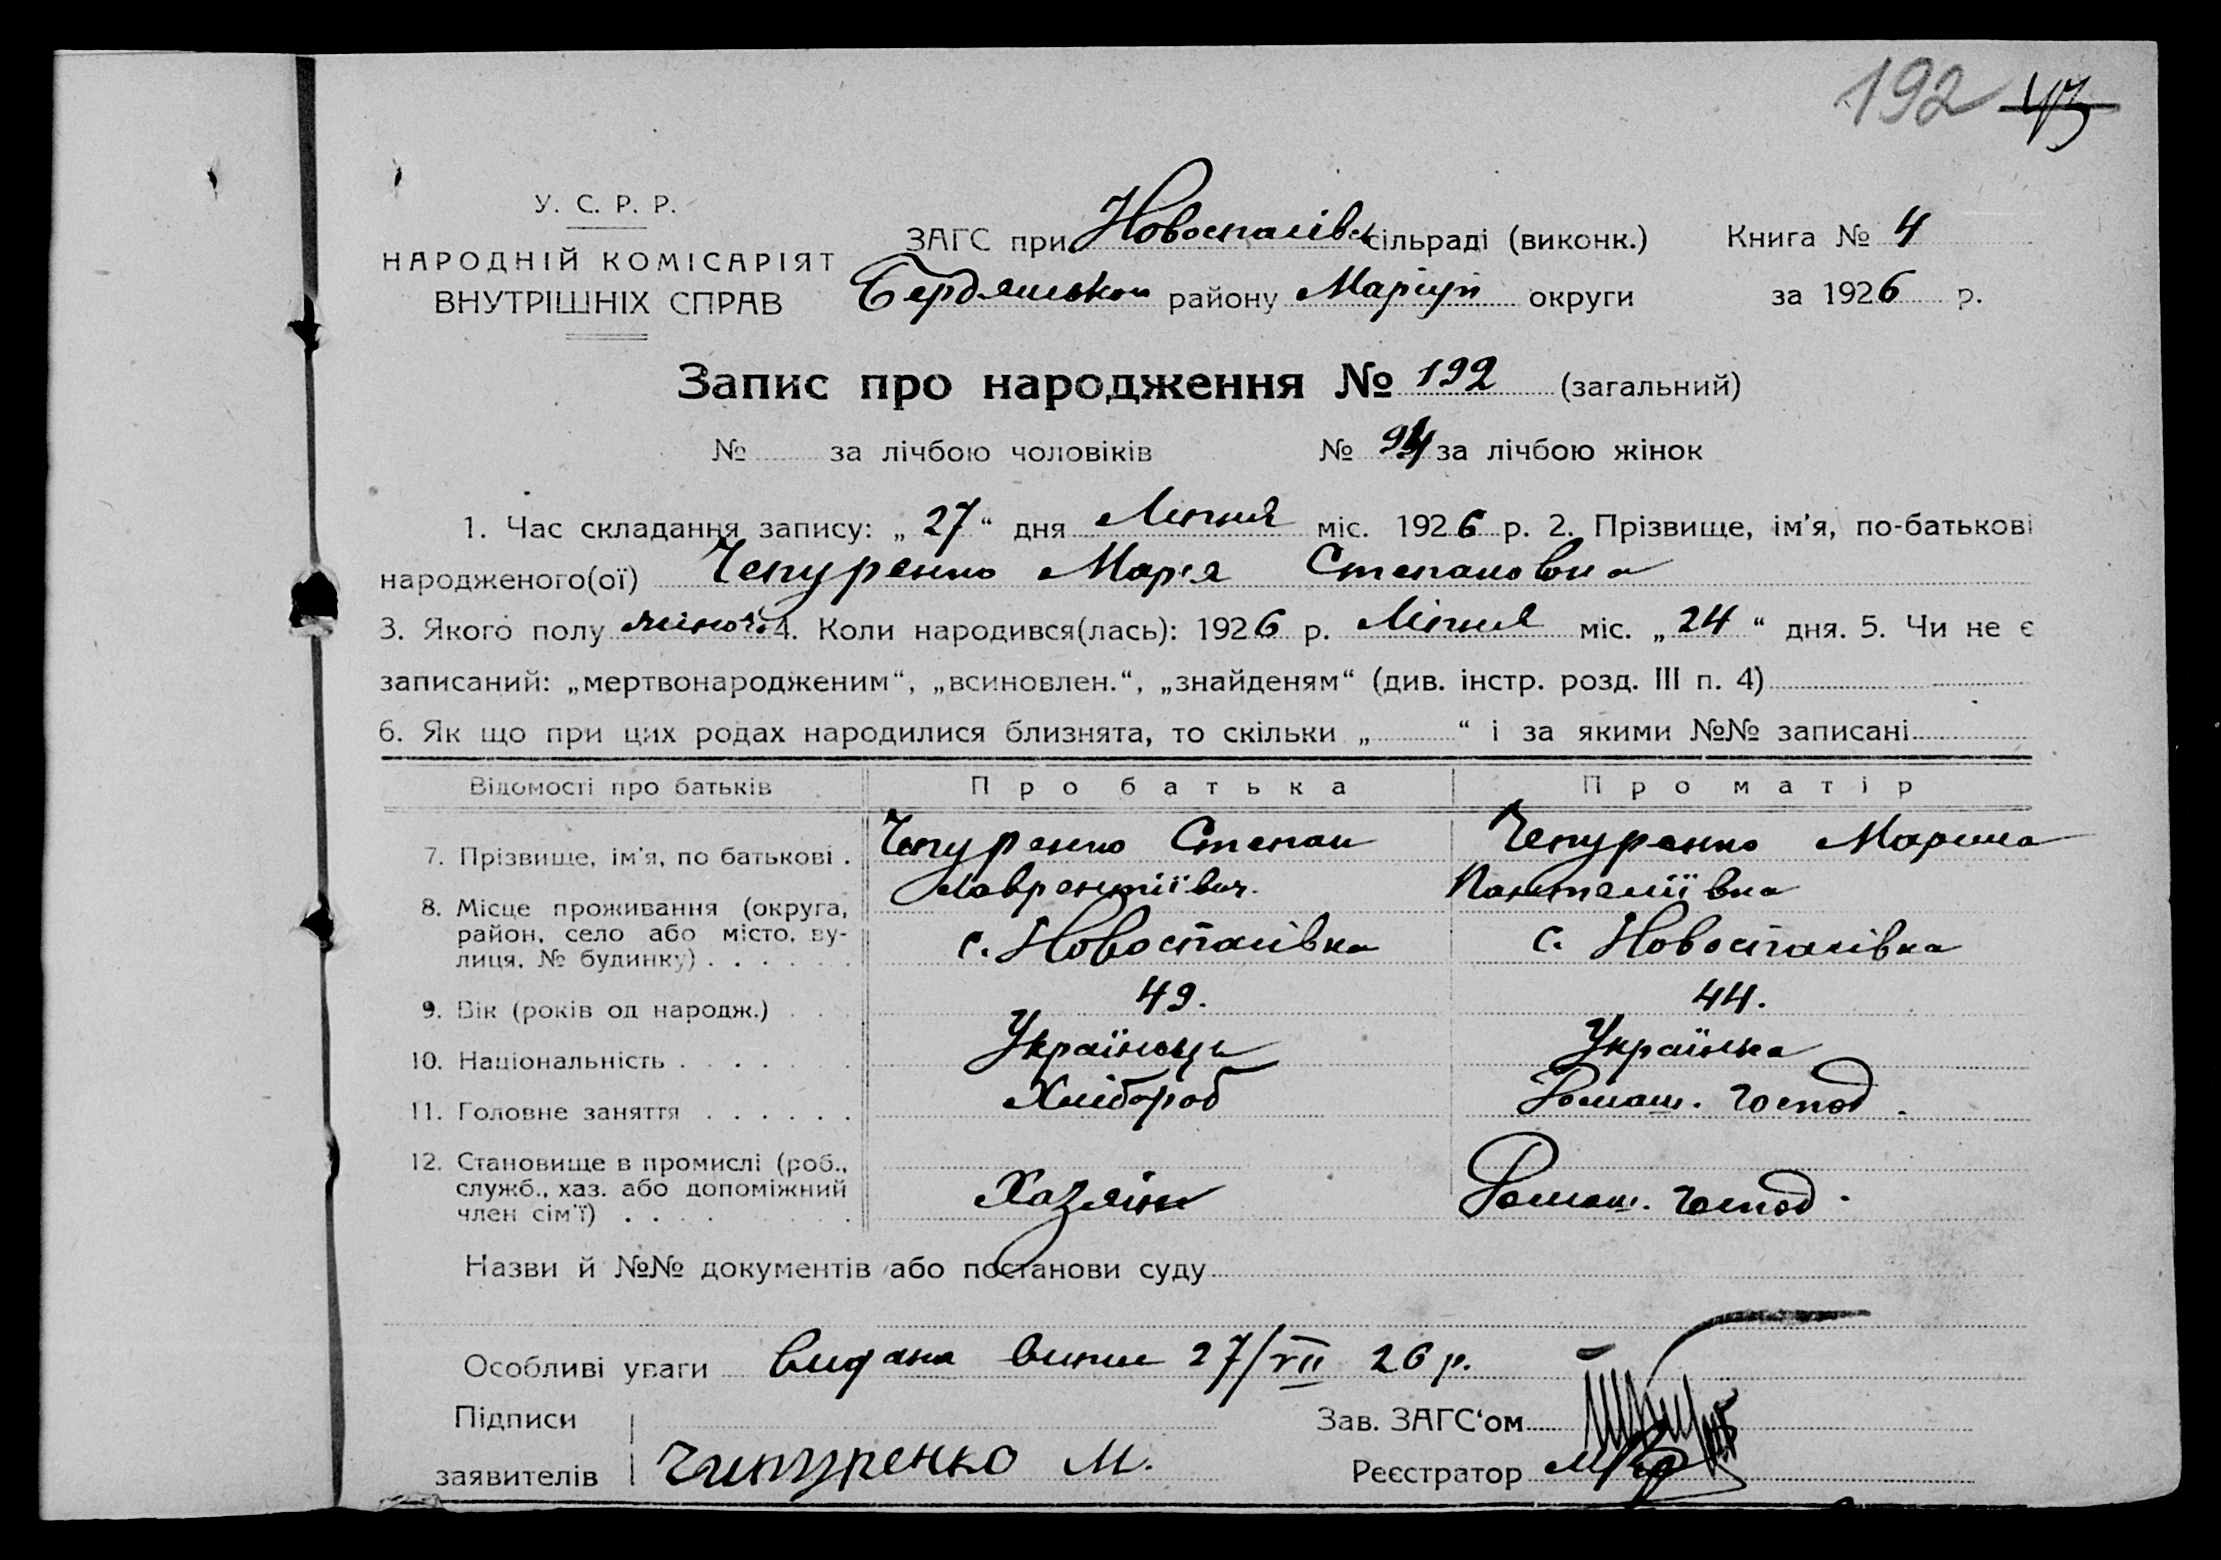 192 43
У. С. Р. Р.
НАРОДНІЙ КОМІСАРІЯТ
ВНУТРІШНІХ СПРАВ
ЗАГС при Новоспасівськ сільраді (виконк.) Книга № 4
Бердянськом району Маріуп округи за 1926 р.
Запис про народження № 192 (загальний)
№ за лічбою чоловіків № 94 за лічбою жінок
1. Час складання запису: „ 27 “ дня Липня міс. 1926 р. 2. Прізвище, ім'я, по-батькові
народженого(ої) Чепуренко Марія Степановна
3. Якого полу жіноч. 4. Коли народився(лась): 1926 р. Липня міс. „ 24 “ дня. 5. Чи не є
записаний: „мертвонародженим“, „всиновлен.“, „знайденям“ (див. інстр. розд. III п. 4)
6. Як що при цих родах народилися близнята, то скільки „ “ і за якими №№ записані
Відомості про батьків Про батька Про матір
7. Прізвище, ім'я, по батькові . Чепуренко Степан Лаврентіївич. Чепуренко Марина Пантеліївна
8. Місце проживання (округа,
район, село або місто, ву-
лиця, № будинку) . . . . . . с. Новоспасівка с. Новоспасівка
9. Вік (років од народж.) . . . 49. 44.
10. Національність . . . . . . . Українець Українка
11. Головне заняття . . . . . . Хлібороб Домаш. господ.
12. Становище в промислі (роб.,
служб., хаз. або допоміжний
член сім'ї) . . . . Хазяїн Домаш. господ.
Назви й №№ документів або постанови суду
Особливі уваги Видана випис 27/VII 26 р.
Підписи Зав. ЗАГС'ом
заявителів Чипуренко М. Реєстратор